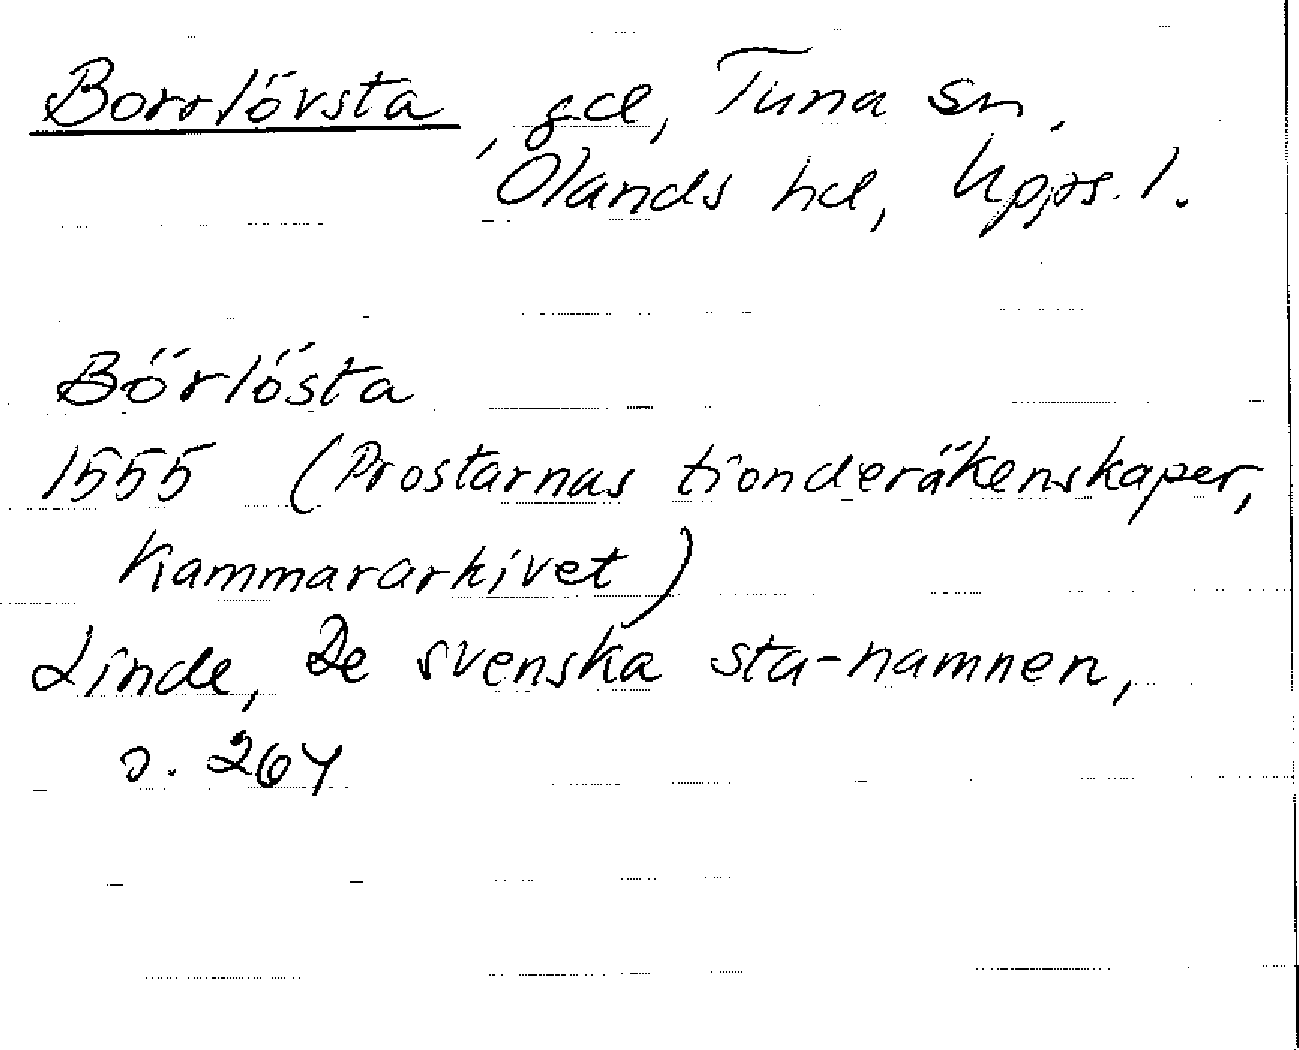 Borrlövsta, gd, Tuna sn,
Olands hd, Upps. l.
Börlösta
1555 (Prostarnas tionderäkenskaper,
Kammararkivet)
Linde, De svenska sta-namnen,
s. 264